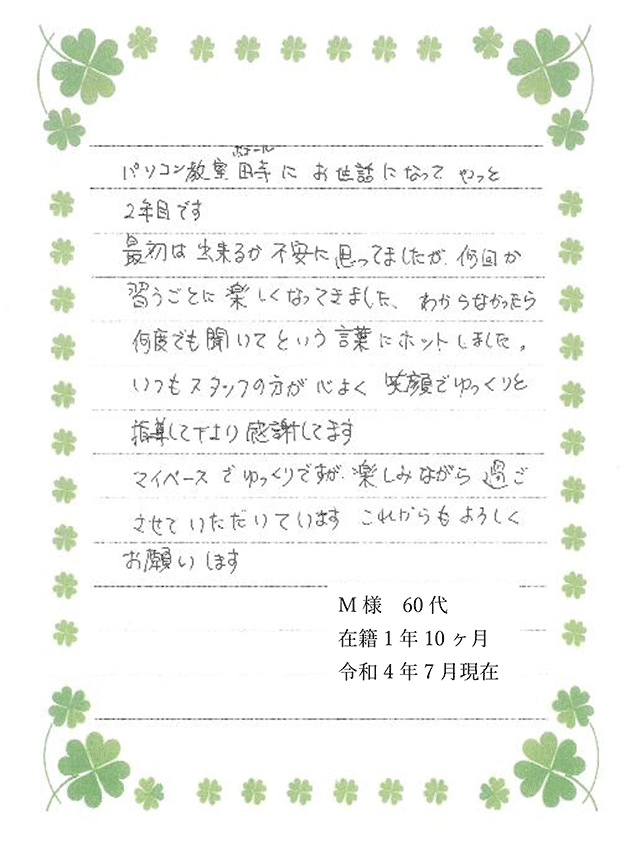 パソコン教室 田寺に お世話になって やっと
2年目です
最初は 出来るか 不安に 思ってましたが、何回か
習うごとに 楽しくなってきました、わからなかったら
何度でも 聞いてという 言葉に ホットしました。
いつもスタッフの方が 心よく 笑顔でゆっくりと
指導して下より 感謝してます
マイペースで ゆっくりですが、楽しみながら 過ご
させていただいています これからもよろしく
お願いします
M様 60代
在籍1年10ヶ月
令和4年7月現在